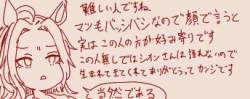 難しい人ですね
マツ毛バッシバシなので顔で言うと
実はこの人の方が好み寄りです
この人無しではシオンさんは語れないので
生まれてきてくれてありがとうってカンジです
当然である